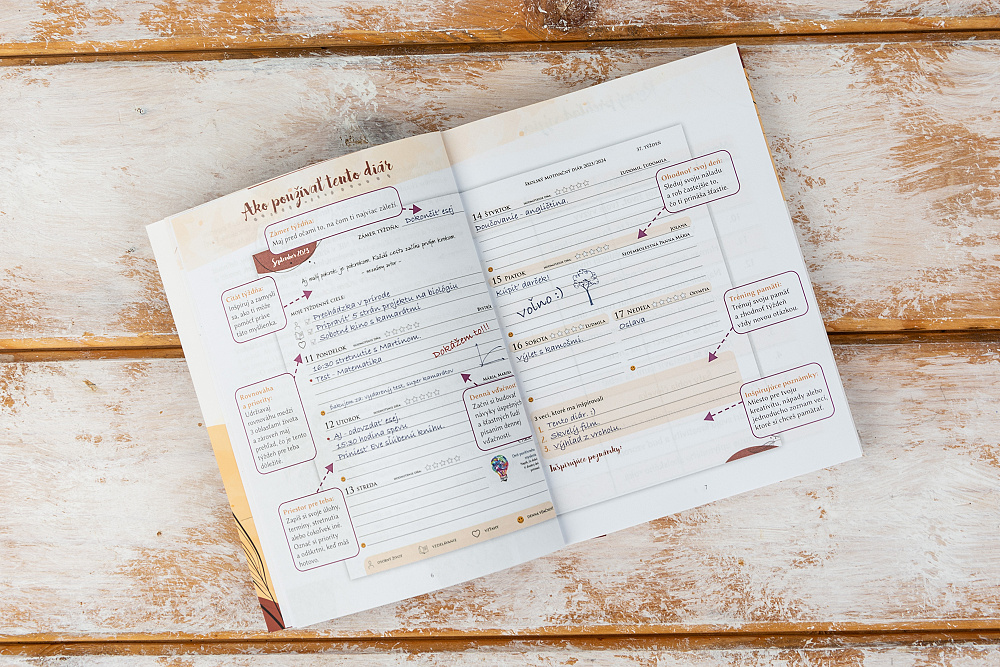 Ako používať tento diár
Zámer týždňa:
Maj pred očami to, na čom ti najviac záleží.
ZÁMER TÝŽDŇA: Dokončiť esej
September 2023
Aj malý pokrok, je pokrokom. Každá cesta začína prvým krokom.
- neznámy autor -
Citát týždňa:
Inšpiruj a zamysli
sa, ako ti môže
pomôcť práve
táto myšlienka.
MOJE TÝŽDENNÉ CIELE:
Prechádzka v prírode
Pripraviť 5 strán projektu na biológiu
Sobotné kino s kamarátmi
11 PONDELOK
16:30 stretnutie s Martinom.
Test - Matematika
Dokážem to!!!
Ďakujem za: vydarený test, super kamarátov
Rovnováha
a priority:
Udržiavaj
rovnováhu medzi
oblasťami života
a zároveň maj
prehľad, čo je tento
týždeň pre teba
dôležité.
12 UTOROK
AJ - odovzdať esej
15:30 hodina spevu
Priniesť Eve sľúbenú knihu.
Denná vďačnosť
Začni si budovať
návyky úspešných
a šťastných ľudí
písaním dennej
vďačnosti.
13 STREDA
Priestor pre teba:
Zapíš si svoje úlohy,
termíny, stretnutia
alebo čokoľvek iné.
Označ si priority
a odškrtni, keď máš
hotovo.
OSOBNÝ ŽIVOT
VZDELÁVANIE
VZŤAHY
DENNÁ VĎAČNOSŤ
6
ŠKOLSKÝ MOTIVAČNÝ DIÁR 2023/2024
37. TÝŽDEŇ
ĽUDOMIL, ĽUDOMILA
14 ŠTVRTOK
Doučovanie - angličtina.
Ohodnoť svoj deň:
Sleduj svoju náladu
a rob častejšie to,
čo ti prináša šťastie.
JOLANA
SEDEMBOLESTNÁ PANNA MÁRIA
15 PIATOK
Kúpiť darček!
VOĽNO :)
16 SOBOTA
ĽUDMILA
Výlet s kamošmi.
17 NEDEĽA
OLYMPIA
Oslava
Tréning pamäti:
Trénuj svoju pamäť
a zhodnoť týždeň
vždy novou otázkou.
3 veci, ktoré ma inšpirovali
1. Tento diár. :)
2. Skvelý film.
3. Výhľad z vrcholu.
Inšpirujúce poznámky:
Inšpirujúce poznámky:
Miesto pre tvoju
kreativitu, nápady alebo
jednoducho zoznam vecí,
ktoré si chceš pamätať.
7